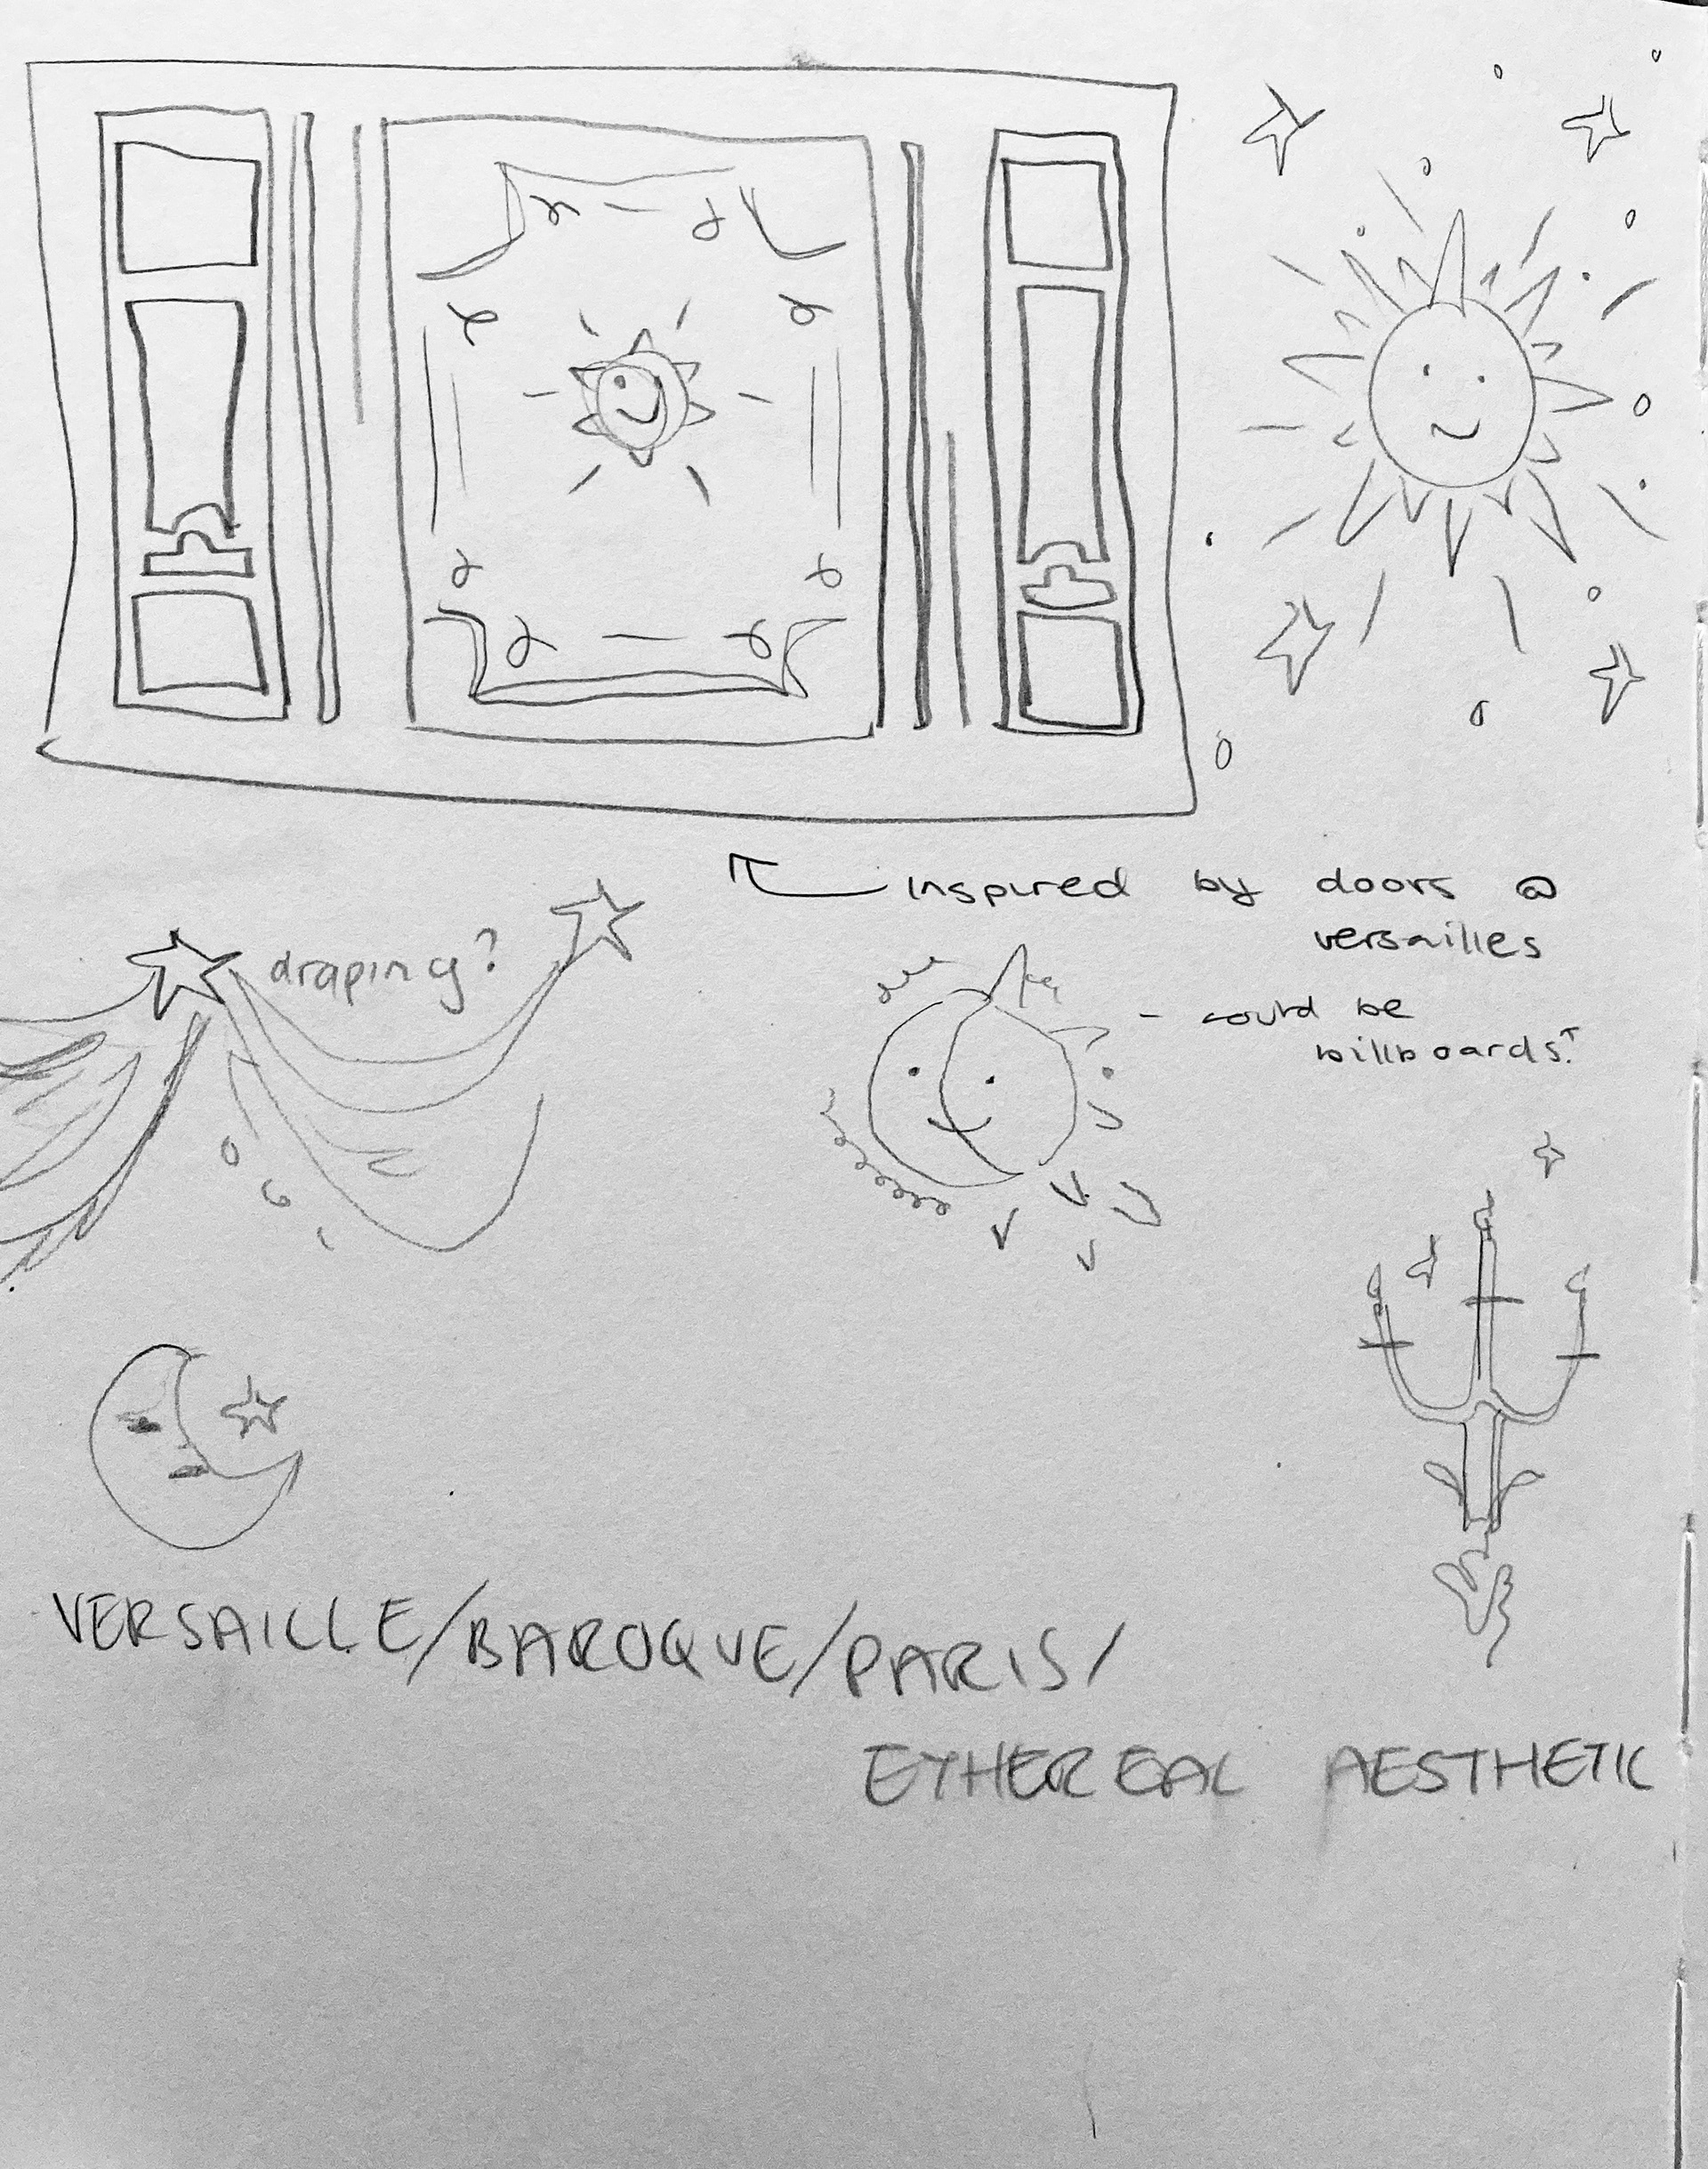 inspired by doors @
versailles
draping?
- could be
billboards?
VERSAILLE/BAROQUE/PARIS/
ETHEREAL AESTHETIC